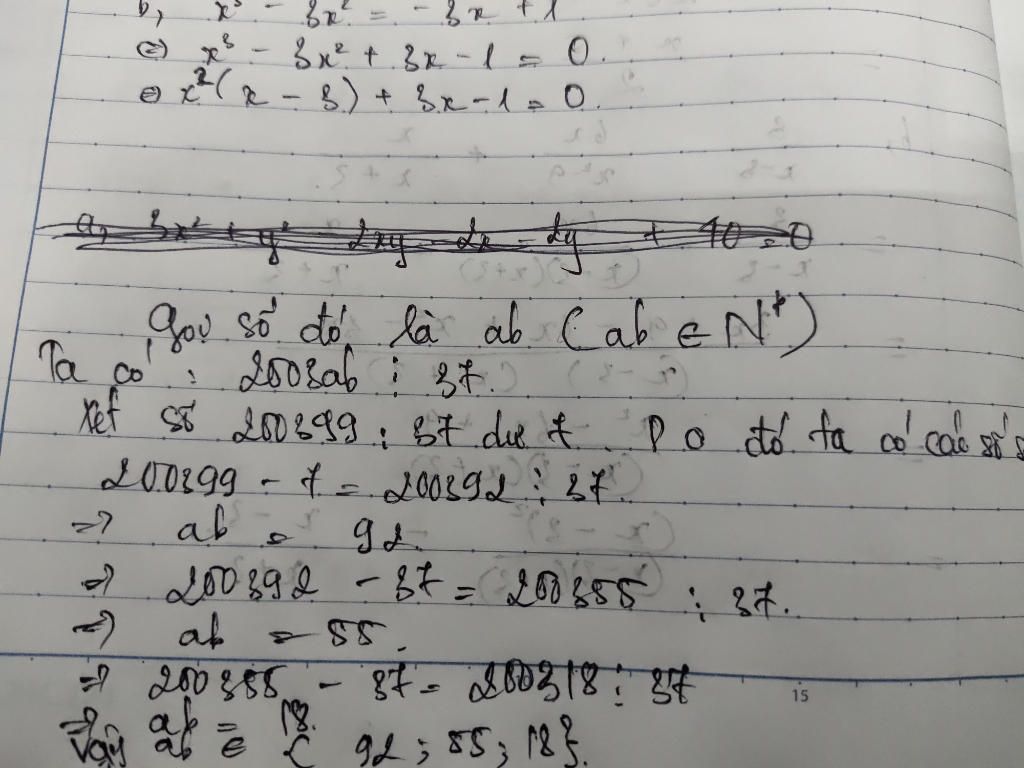 b, x³ - 3x² = -3x + 1
⇔ x³ - 3x² + 3x - 1 = 0.
⇔ x²(x - 3) + 3x - 1 = 0.
a, 3x² + y² 2xy - 2x - 2y + 10 = 0
Gọi số đó là ab (ab ∈ N*)
Ta có : 2003ab ⋮ 37.
Xét số 200399 : 37 dư 7. Do đó ta có các số
200399 - 7 = 200392 ⋮ 37.
=> ab = 92.
=> 200392 - 37 = 200355 ⋮ 37.
=> ab = 55.
=> 200355 - 37 = 200318 ⋮ 37
15
=> ab = 18.
Vậy ab ∈ { 92 ; 55 ; 18}.